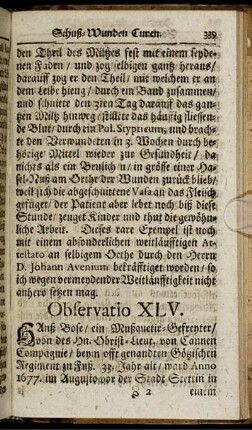 Schuß-Wunden Curen. 339
den Theil des Miltzes fest mit einem seyde-
nen Faden / und zog selbigen gantz heraus /
darauff zog er den Theil / mit welchem er an
dem Leibe hieng / durch ein Band zusammen /
und schnitte den 3ten Tag darauff das gan-
tze Miltz hinweg / stillete das häuffig fliessen-
de Blut / durch ein Pul. Stypticum, und brach-
te den Verwundeten in 3. Wochen durch be-
hörige Mittel wieder zur Gesundheit / da
nichts als ein Beulich in / in grösse einer Ha-
sel-Nuß am Orthe der Wunden zurück blieb /
weil sich die abgeschnittene Vasa an das Fleisch
gefüget / der Patient aber lebet noch biß diese
Stunde / zeuget Kinder und thut die gewöhn-
liche Arbeit. Dieses rare Exempel ist noch
mit einem absonderlichen weitläufftigen At-
testato an selbigem Orthe durch den Herrn
D. Johann Avenium bekräfftiget worden / so
ich wegen vermeydender Weitläufftigkeit nicht
anhero setzen mag.
Observatio XLV.
HAnß Bose / ein Mußquetir-Gefreyter /
von des Hn. Obrist-Lieut. von Cannen
Compagnie / beym offt genandten Götzischen
Regiment zu Fuß. 33. Jahr alt / ward Anno
1677. im Augusto vor der Stadt Stettin in
einem